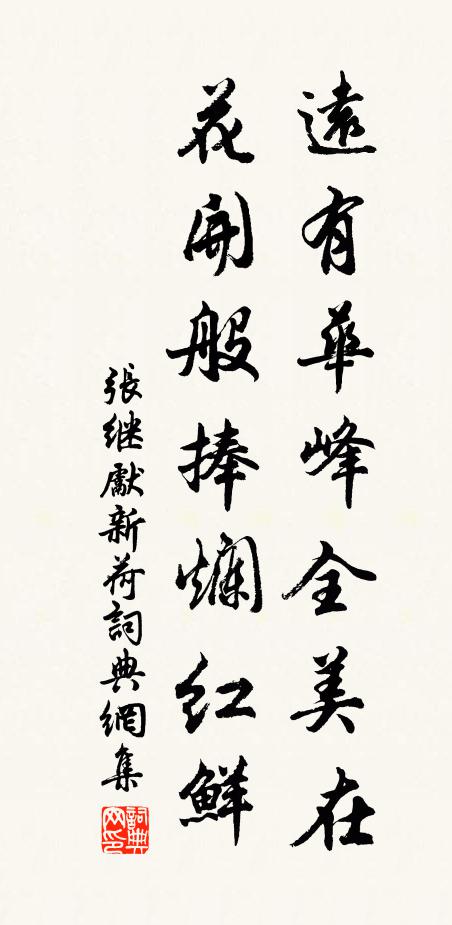 遠有華峰全美在
花開般捧爛红鮮
張继獻新荷詞典網集
詞典網印